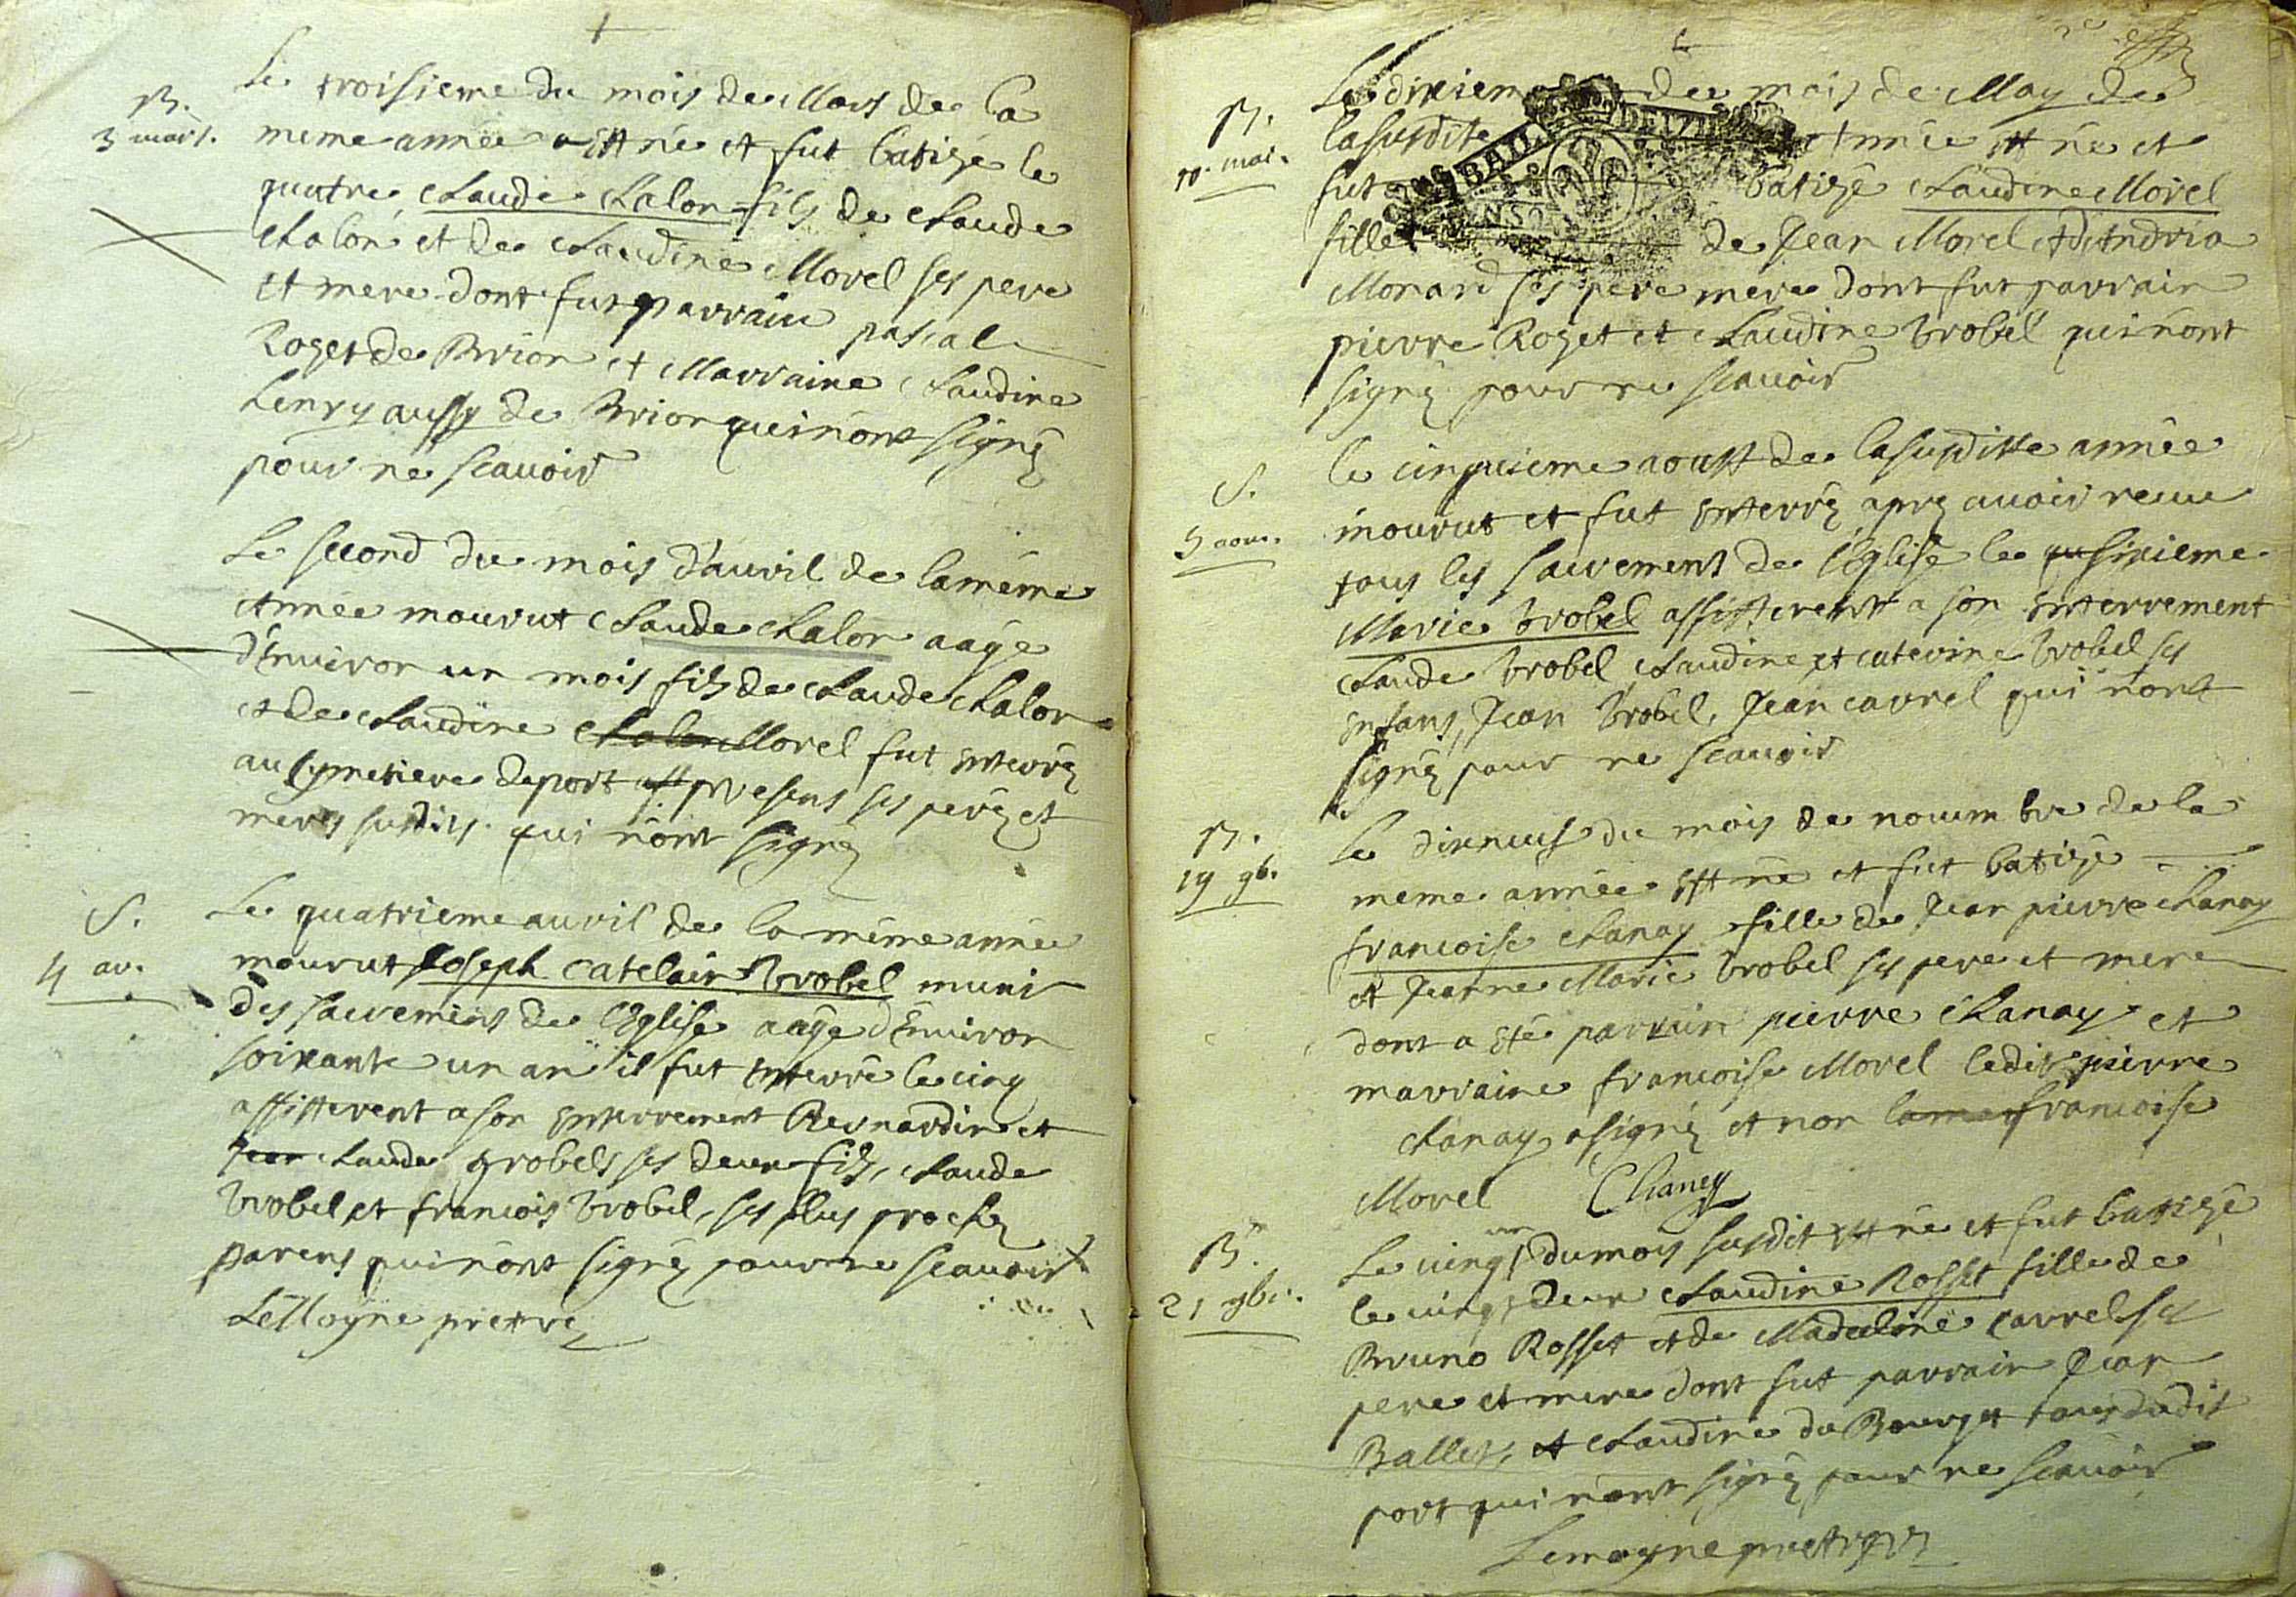 B.
3 mars.
Le troisieme du mois de Mars de la
meme année est né et fut batisé le
quatre Claude Chalon fils de Claude
Chalon et de Claudine Morel ses pere
et mere dont fut parrain pascal
Roget de Brion et Marraine Claudine
henry aussy de Brion qui n'ont signé
pour ne scauoir
Le second du mois d'auvril de la méme
Année mourut Claude Chalon aagé
d'Enuiron un mois fils de Claude Chalon
et de Claudine Chalon Morel fut enterré
au Cymetiere de port presens ses peré et
meres susdits qui n'ont signé
S.
4 av.
Le quatrieme auvril de la méme année
mourut Joseph Catelain Brobel muni
des sacremens de l'Eglise aagé d'Enuiron
soixante un an il fut enterré le cinq
assisterent a son enterrement Bernardin et
Jean Claude Brobels ses deux fils, Claude
Brobel et francois Brobel, ses plus proches
parens qui n'ont signé pour ne scauoir
LeMoyne prettre
B.
10. mai.
Le dixieme de mois de May de
la susdite Année est né et
fut batisé Claudine Morel
fille de Jean Morel et d'Andrea
Monard ses pere mere dont fut parrain
pierre Roget et Claudine Brobel qui n'ont
signé pour ne scauoir
S.
5 aou.
le cinquieme aoust de la susditte année
mourut et fut enterré aprez auoir receu
tous les sacrements de l'Eglise le sixieme
Marie Brobel assisterent a son enterrement
Claude Brobel Claudine et caterine Brobel ses
enfans, Jean Brobel, Jean carrel qui n'ont
signé pour ne scauoir
B.
19 9b.
Le dixneuf du mois de nouembre de la
meme année est né et fut batisé
francoise Chanay fille de Jean pierre Chanay
et Jeanne Marie Brobel ses pere et mere
dont a eté parrain pierre Chanay et
marraine francoise Morel ledit pierre
Chanay a signé et non francoise
Morel Chaney
B.
21 9br.
Le uingt un du mois susdit est né et fut batisé
le uingt deux Claudine Rosset fille de
Bruno Rosset et de Madeleine carrel ses
pere et mere dont fut parrain Jean
Ballet, et Claudine du Bourget tous dudit
port qui n'ont signé pour ne scauoir
Lemoyne prettre